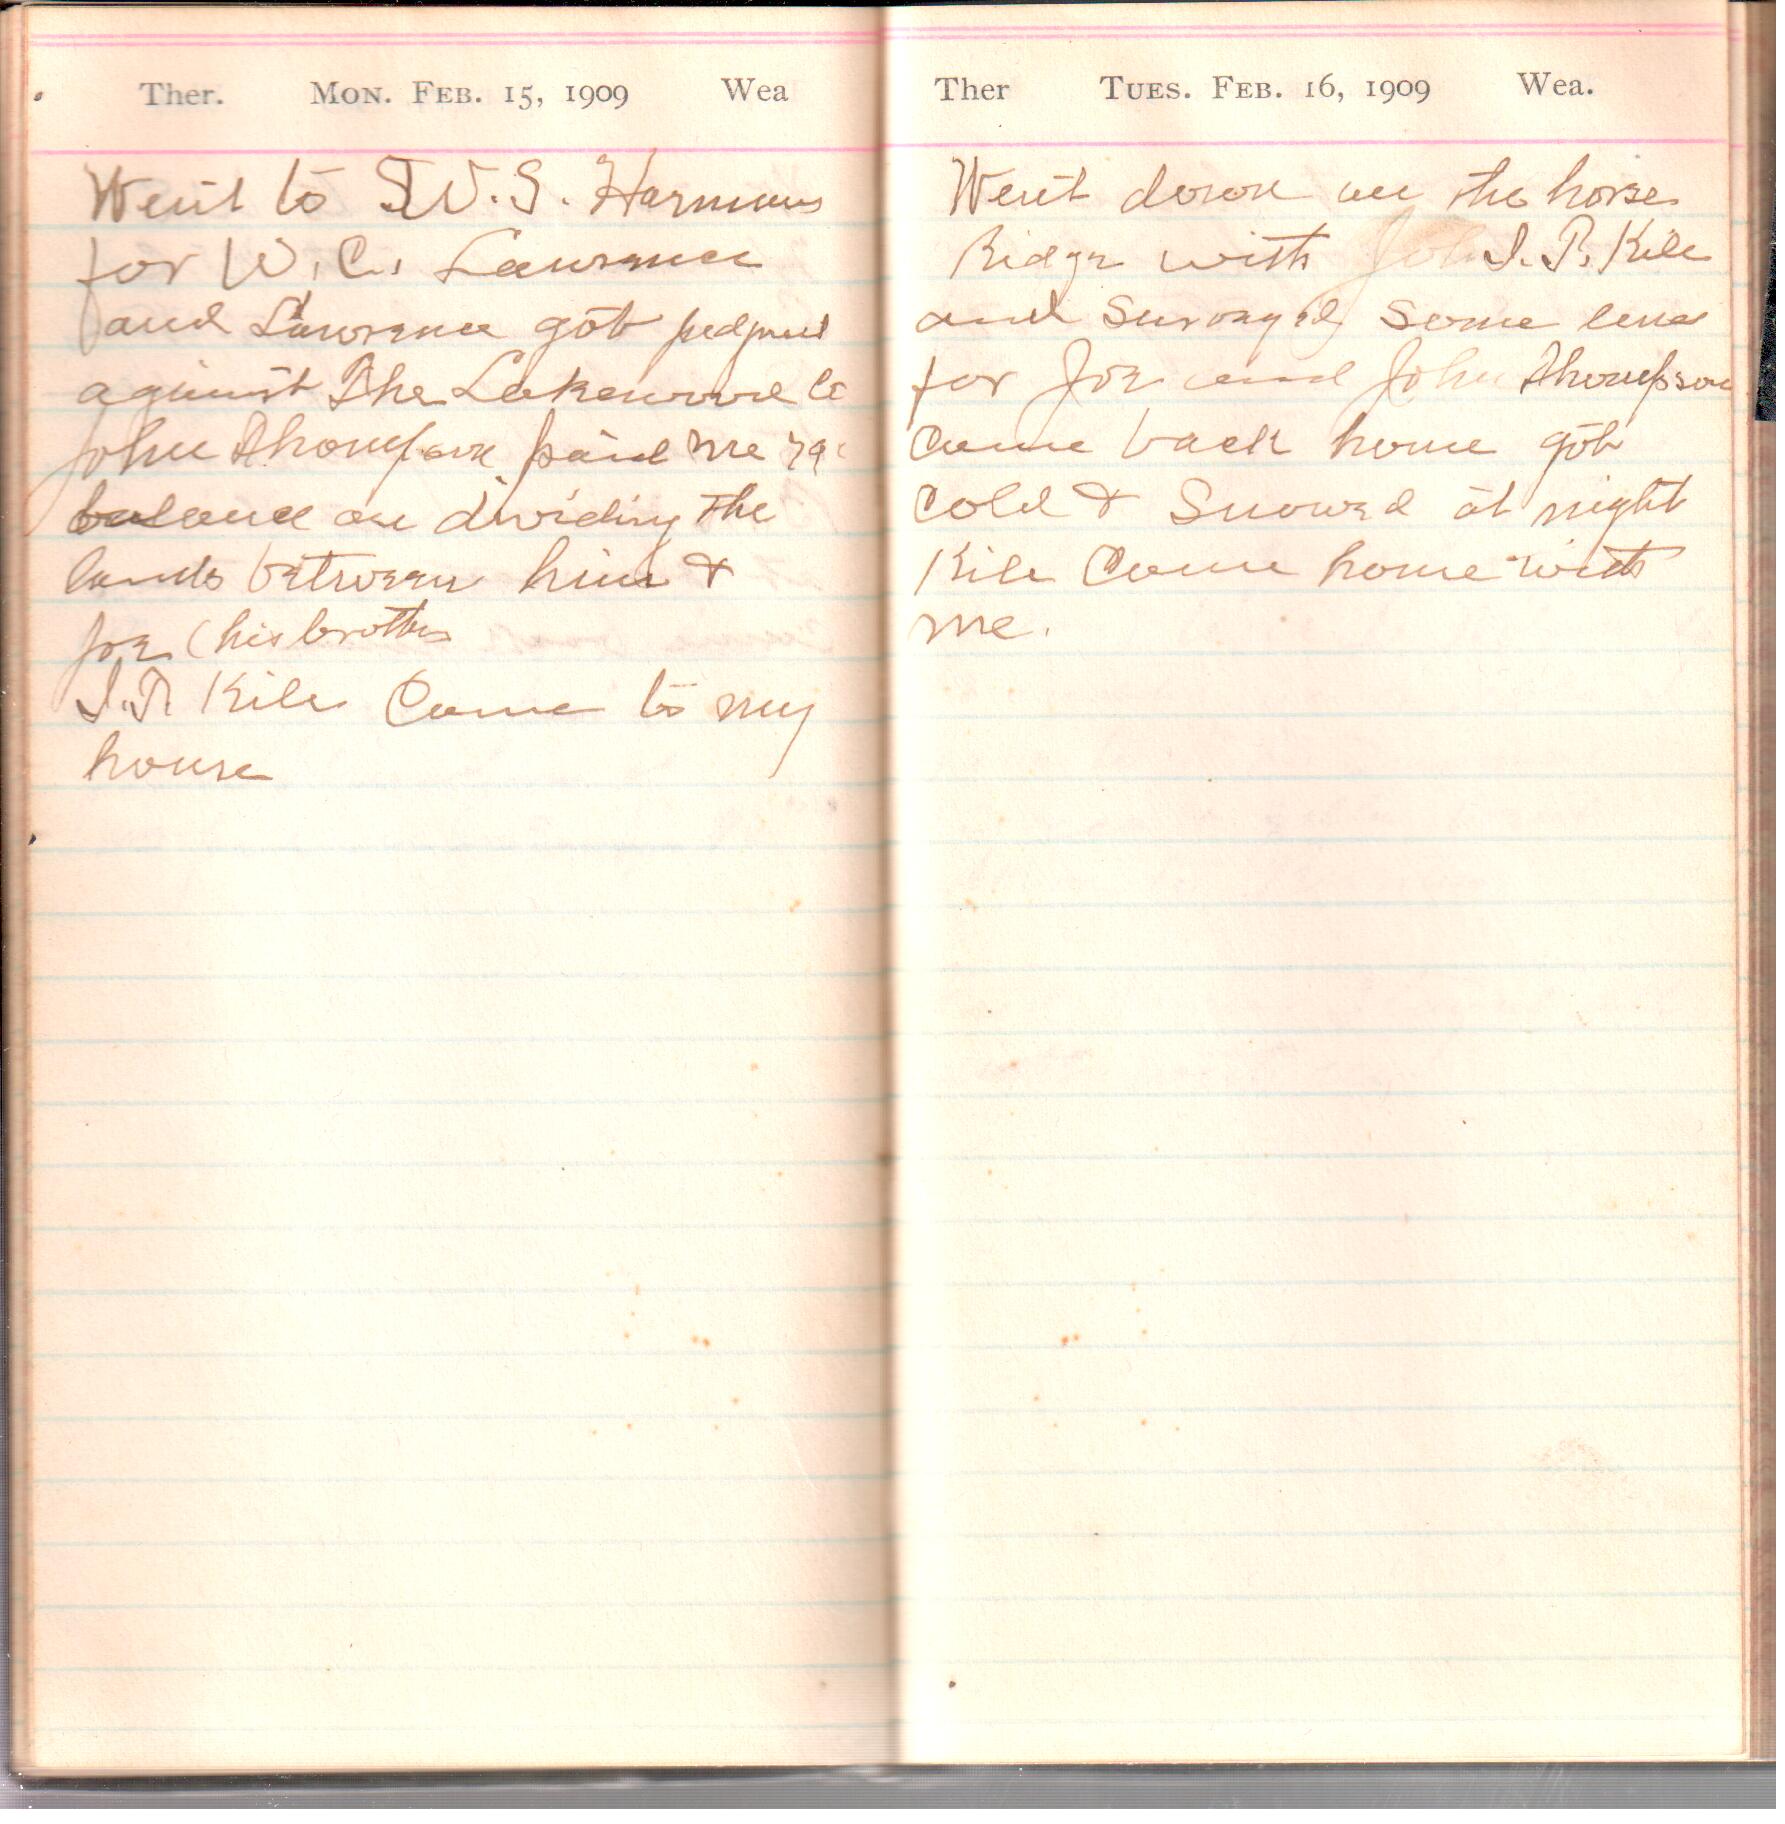 Ther. Mon. Feb. 15, 1909 Wea
Went to S.W.S. Harmans
for W.C. Lawrence
and Lawrence got judgment
against The Lakewood Co
John Thompson paid me
balance on dividing the
lands between him &
Joe (his brother
I.P. Kile Came to my
house
Ther Tues. Feb. 16, 1909 Wea.
Went down on the horse
Ridge with I.P. Kile
and Surveyed Some lines
for Joe and John Thompson
Came back home got
Cold & Snowed at night
Kile Came home with
me.